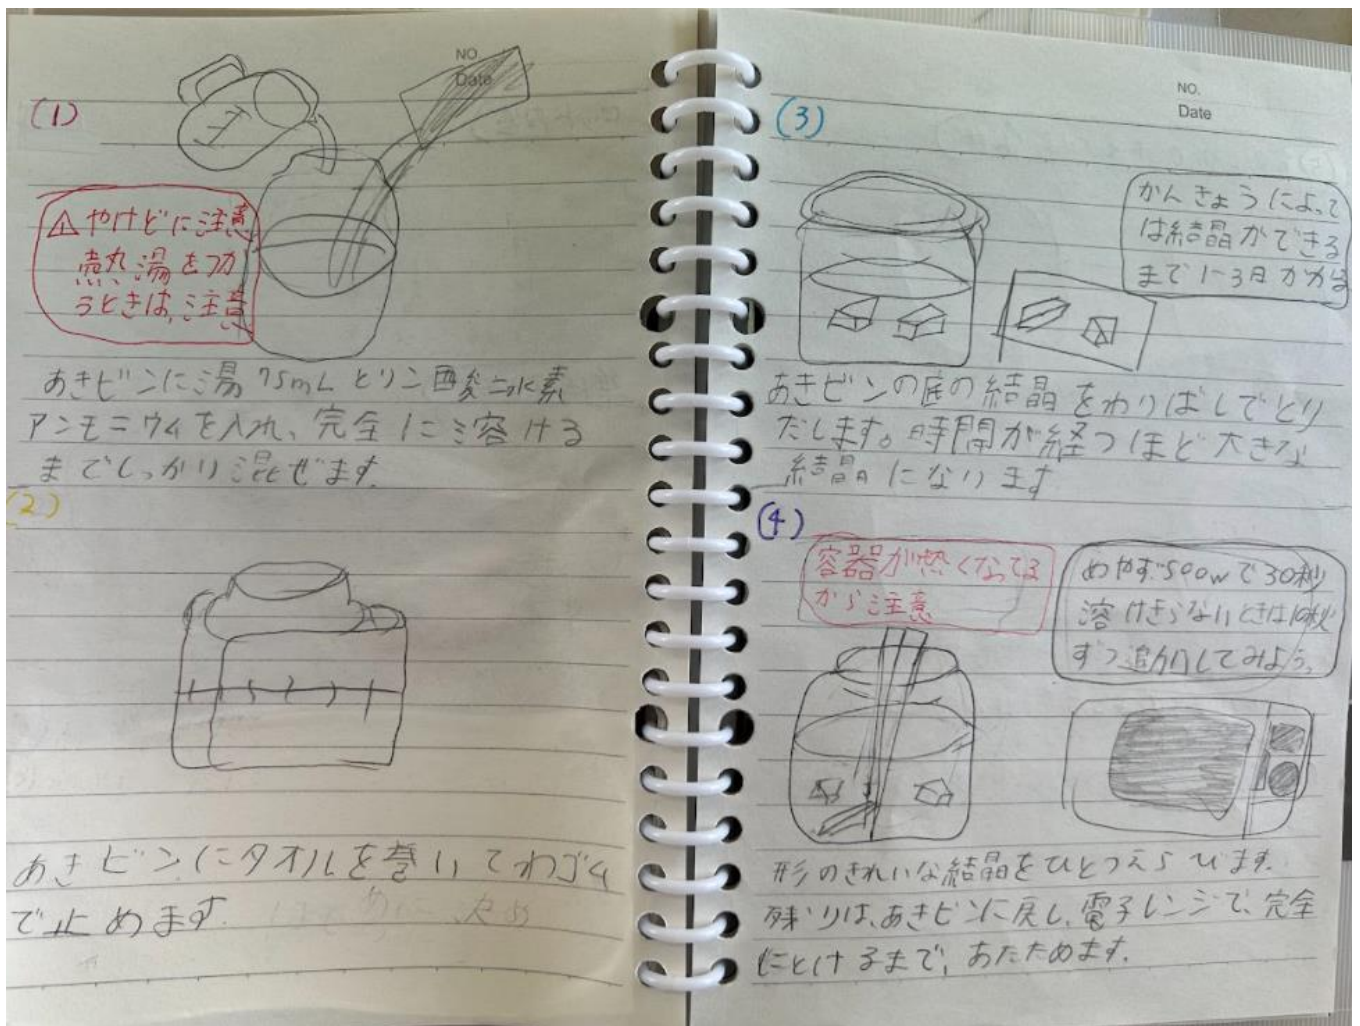 NO.
Date
(1)
⚠やけどに注意
熱湯をつか
うときは、注意
あきビンに湯75mLとリン酸二水素
アンモニウムを入れ、完全に溶ける
までしっかり混ぜます。
(2)
あきビンにタオルを巻いてわゴム
で止めます。
NO.
Date
(3)
かんきょうによって
は結晶ができる
まで1~3日かかる
あきビンの底の結晶をわりばしでとり
だします。時間が経つほど大きな
結晶になります
(4)
容器が熱くなってる
から注意
めやす500wで30秒
溶けきらないときは10秒
ずつ追加してみよう。
形のきれいな結晶をひとつえらびます。
残りは、あきビンに戻し、電子レンジで、完全
にとけるまで、あたためます。